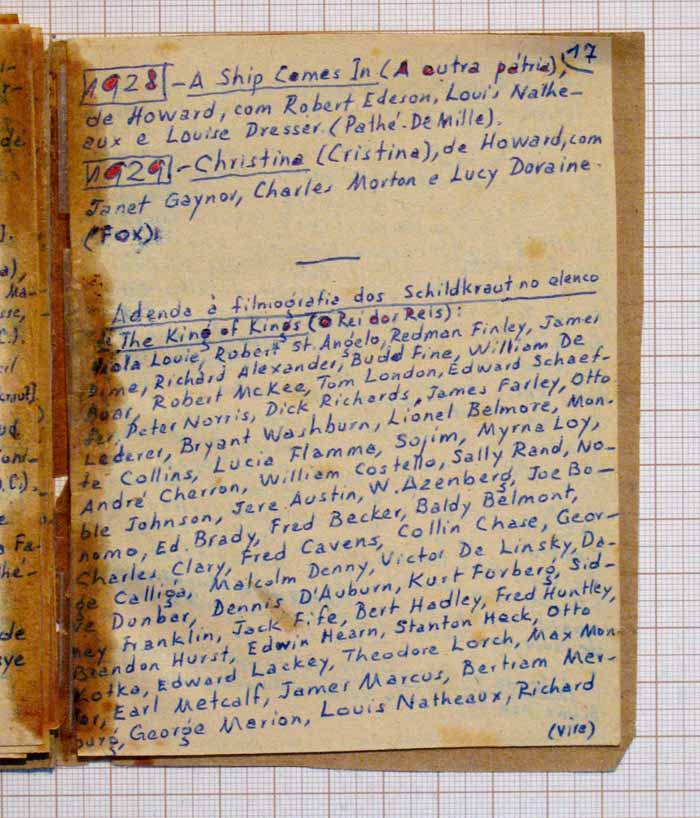 17
1928 - A Ship Comes In (A outra pátria),
de Howard, com Robert Edeson, Louis Nathe-
aux e Louise Dresser. (Pathé-DeMille).
1929 - Christina (Cristina), de Howard, com
Janet Gaynor, Charles Morton e Lucy Doraine.
(FOX).
Adenda à filmiografia dos Schildkraut no elenco
The King of Kings (O Rei dos Reis):
Louie, Robert St. Angelo, Redman Finley, James
Dime, Richard Alexander, Budd Fine, William De
Boar, Robert McKee, Tom London, Edward Schaef-
fer, Peter Norris, Dick Richards, James Farley, Otto
Lederer, Bryant Washburn, Lionel Belmore, Mon-
te Collins, Lucia Flamma, Sojim, Myrna Loy,
André Cherron, William Costello, Sally Rand, No-
ble Johnson, Jere Austin, W. Azenberg, Joe Bo-
nomo, Ed. Brady, Fred Becker, Baldy Belmont,
Charles Clary, Fred Cavens, Collin Chase, Geor-
ge Calliga, Malcolm Denny, Victor De Linsky, Da-
ve Dunbar, Dennis D'Auburn, Kurt Forberg, Sid-
ney Franklin, Jack Fife, Bert Hadley, Fred Huntley,
Brandon Hurst, Edwin Hearn, Stanton Heck, Otto
Kotka, Edward Lackey, Theodore Lorch, Max Mon-
tor, Earl Metcalf, James Marcus, Bertram Mer-
burg, George Marion, Louis Natheaux, Richard
(vire)